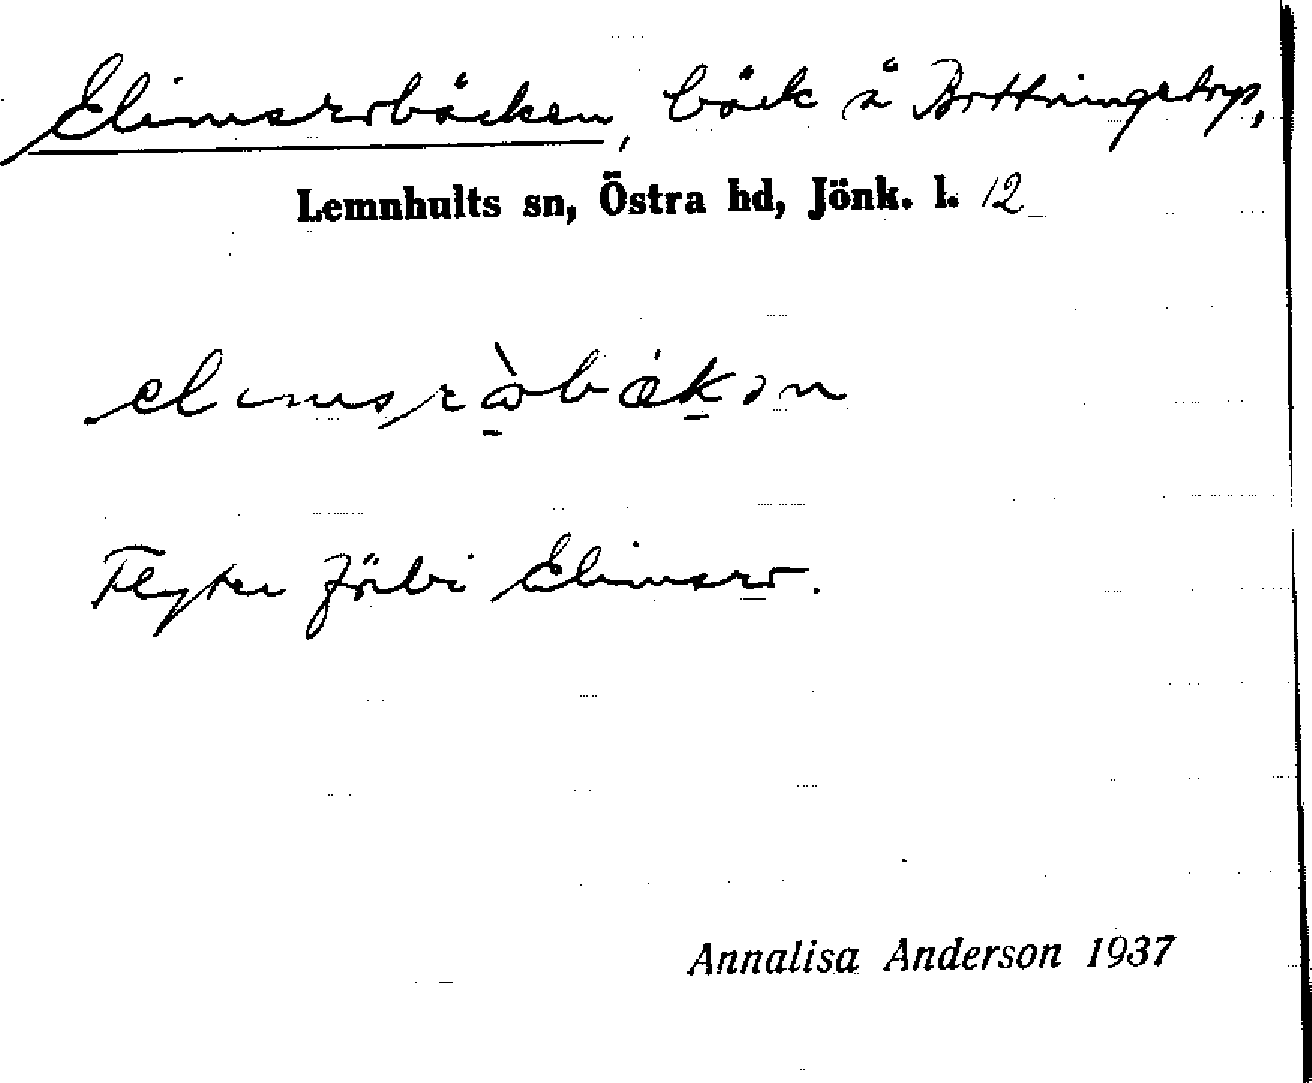 Elimsrobäcken, bäck å Bottningstorp,
Lemnhults sn, Östra hd, Jönk. l. 12
Flyter förbi Elimsro.
Annalisa Anderson 1937